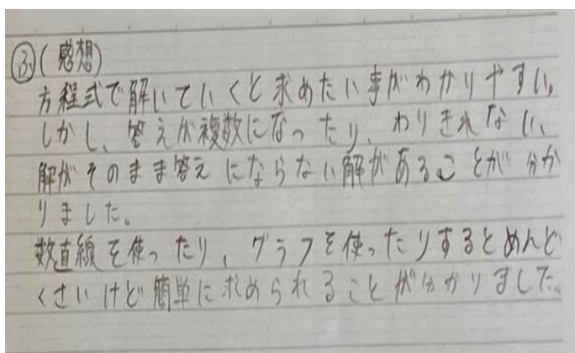 ③(感想)
方程式で解いていくと求めたい事がわかりやすい。
しかし、答えが複数になったり、わりきれない、
解がそのまま答えにならない解があることが分か
りました。
数直線を使ったり、グラフを使ったりするとめんど
くさいけど簡単に求められることが分かりました。